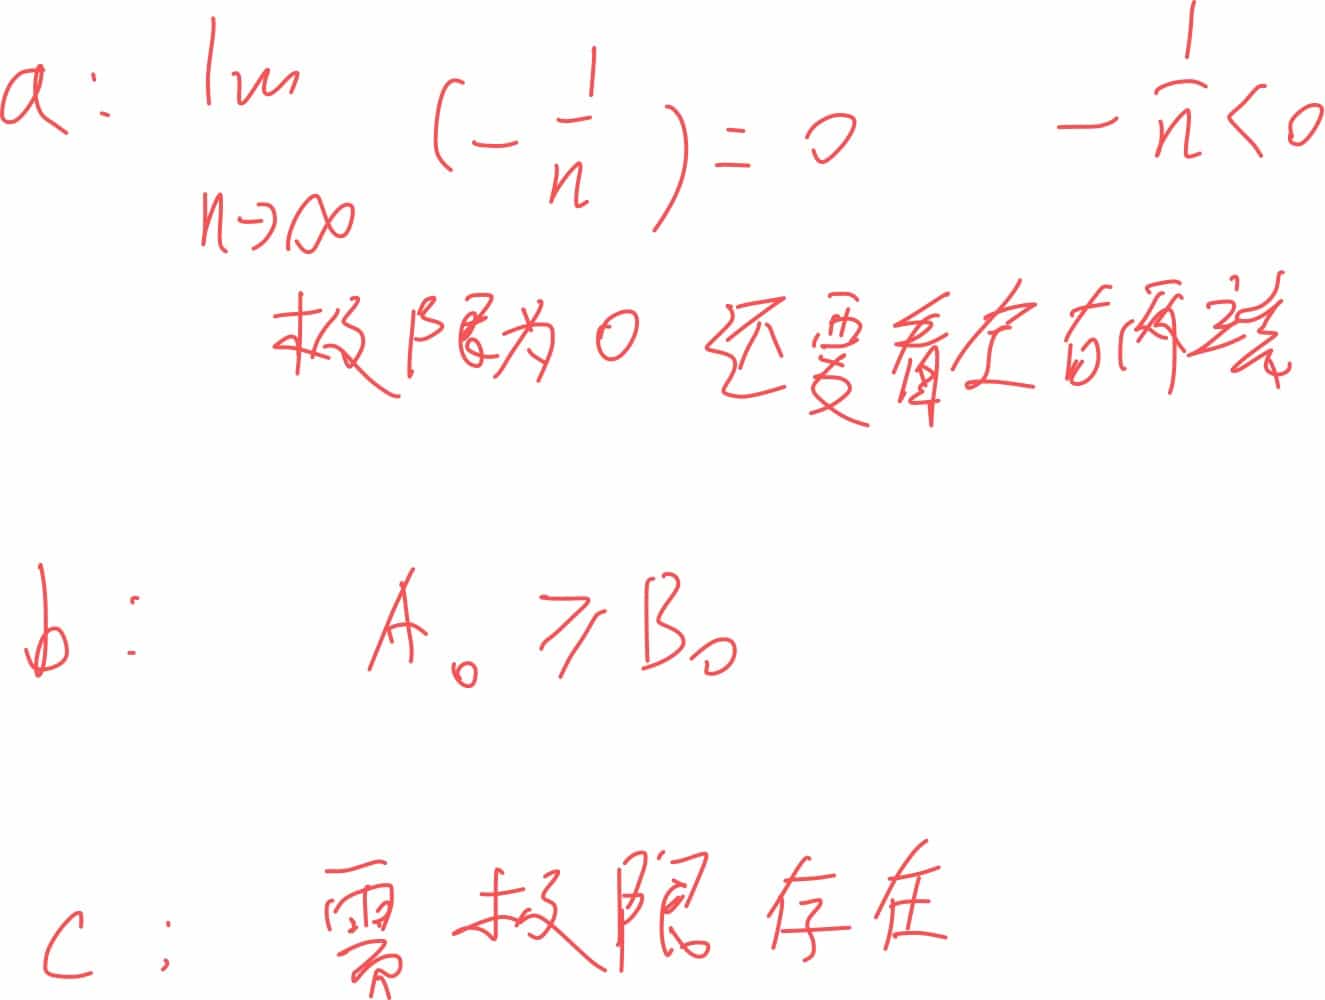 a: lim n→∞ (-1/n) = 0 -1/n < 0
极限为0 还要看左右两端
b: A₀ ≥ B₀
c: 需极限存在